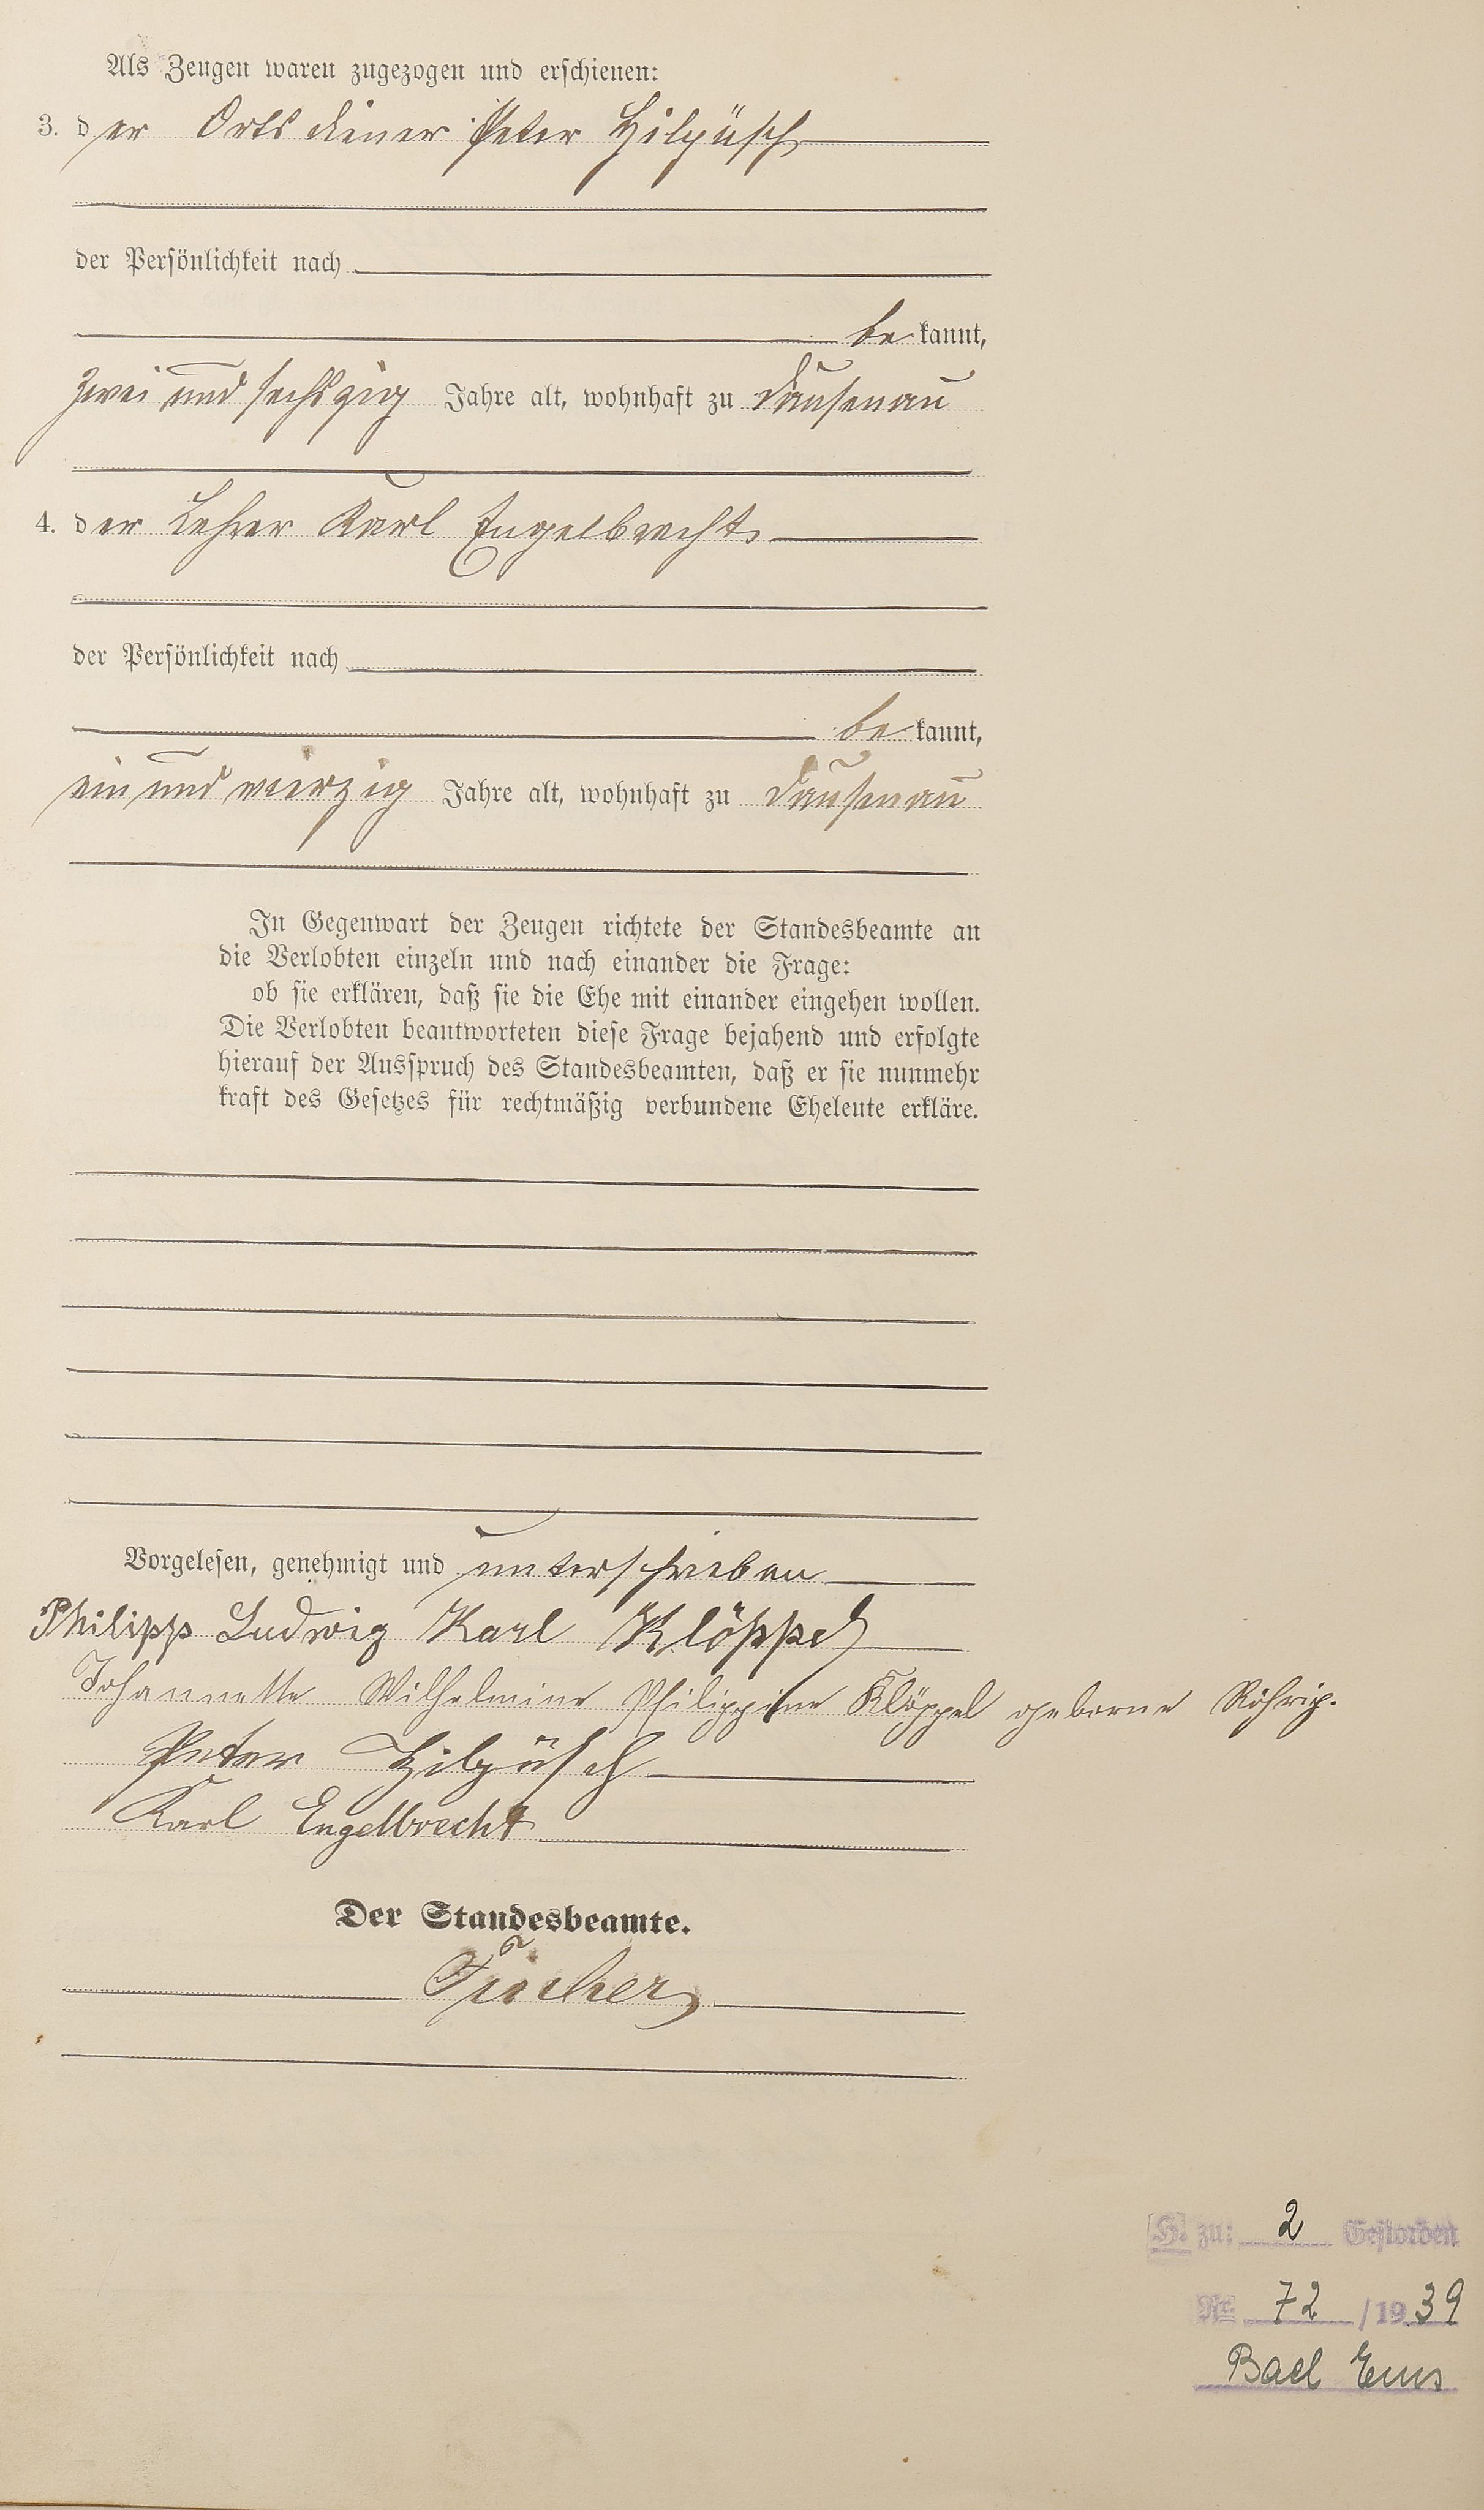 Als Zeugen waren zugezogen und erschienen:
3. der Ortsdiener Peter Hilpüsch
der Persönlichkeit nach
bekannt,
zwei und sechszig Jahre alt, wohnhaft zu Dausenau
4. der Lehrer Karl Engelbrecht
der Persönlichkeit nach
bekannt,
ein und vierzig Jahre alt, wohnhaft zu Dausenau
In Gegenwart der Zeugen richtete der Standesbeamte an
die Verlobten einzeln und nach einander die Frage:
ob sie erklären, daß sie die Ehe mit einander eingehen wollen.
Die Verlobten beantworteten diese Frage bejahend und erfolgte
hierauf der Ausspruch des Standesbeamten, daß er sie nunmehr
kraft des Gesetzes für rechtmäßig verbundene Eheleute erkläre.
Vorgelesen, genehmigt und unterschrieben
Philipp Ludwig Karl Klöppel
Johannette Wilhelmine Philippine Klöppel geborne Röhrig.
Peter Hilpüsch
Karl Engelbrecht
Der Standesbeamte.
[H.] zu: 2 Gestorben
Nr. 72 /1939
Bad Ems